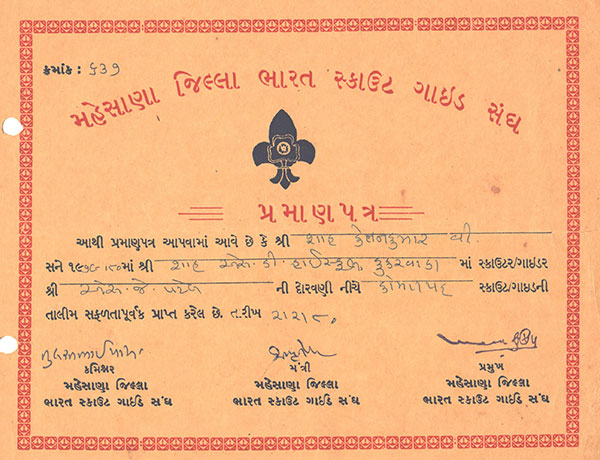 ક્રમાંક : ૬૩૭
મહેસાણા જિલ્લા ભારત સ્કાઉટ ગાઇડ સંઘ
પ્રમાણપત્ર
આથી પ્રમાણપત્ર આપવામાં આવે છે કે શ્રી શાહ કેતનકુમાર વી.
સને ૧૯૭૯/૮૦માં શ્રી શાહ એસ. કે. હાઈસ્કૂલ, કુકરવાડા માં સ્કાઉટર/ગાઇડર
શ્રી એસ. જે. પટેલ ની દોરવણી નીચે કોમળપદ સ્કાઉટ/ગાઇડની
તાલીમ સફળતાપૂર્વક પ્રાપ્ત કરેલ છે. તારીખ ૨/૨/૮૦
કમિશ્નર મંત્રી પ્રમુખ
મહેસાણા જિલ્લા મહેસાણા જિલ્લા મહેસાણા જિલ્લા
ભારત સ્કાઉટ ગાઇડ સંઘ ભારત સ્કાઉટ ગાઇડ સંઘ ભારત સ્કાઉટ ગાઇડ સંઘ